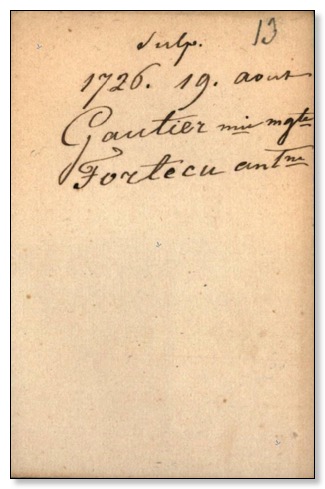 Sulp. 13
1726. 19. aout
Gautier mie mgte
Fortecu antne